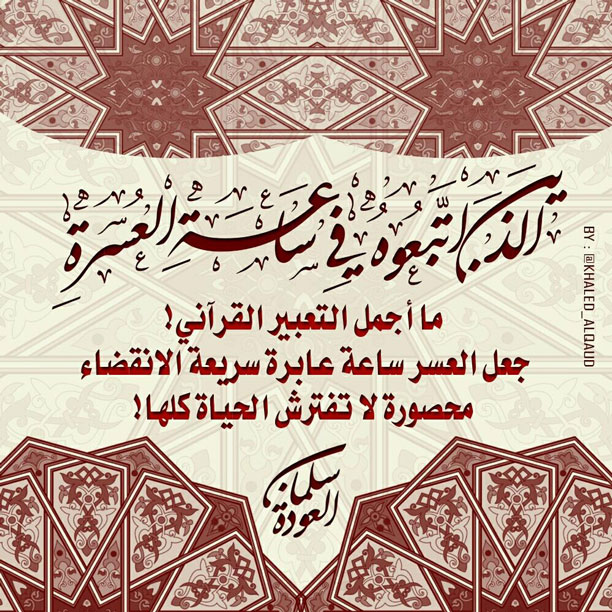 الَّذِينَ اتَّبَعُوهُ فِي سَاعَةِ الْعُسْرَةِ
ما أجمل التعبير القرآني!
جعل العسر ساعة عابرة سريعة الانقضاء
محصورة لا تفترش الحياة كلها!
سلمان
العودة
BY : @KHALED_ALQAUD